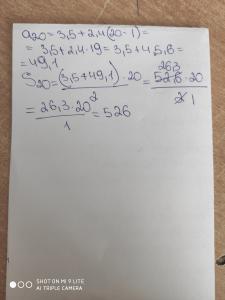 a₂₀ = 3,5 + 2,4(20 - 1) =
= 3,5 + 2,4 · 19 = 3,5 + 45,6 =
= 49,1
S₂₀ = (3,5 + 49,1) · 20 = 26,3 52,6 · 20
2 1
= 26,3 · 20 = 526
1
SHOT ON MI 9 LITE
AI TRIPLE CAMERA